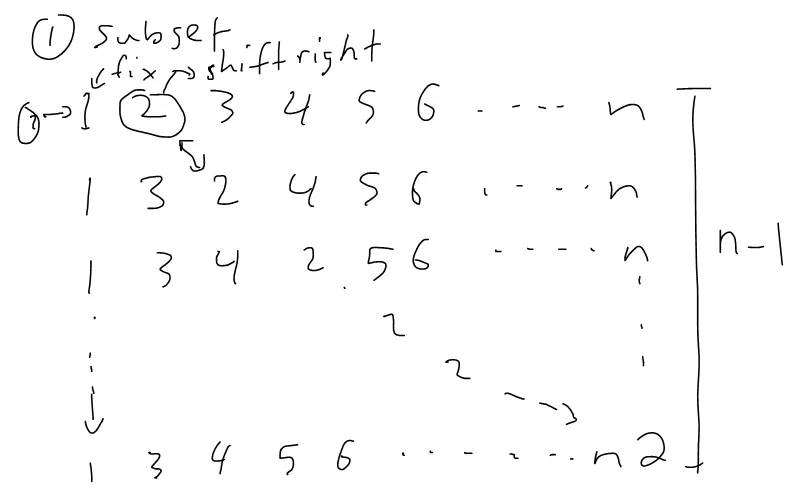 ① subset
fix shift right
1 2 3 4 5 6 ----- n
1 3 2 4 5 6 ----- n
1 3 4 2 5 6 ----- n
n-1
2
2
1 3 4 5 6 ------- n 2